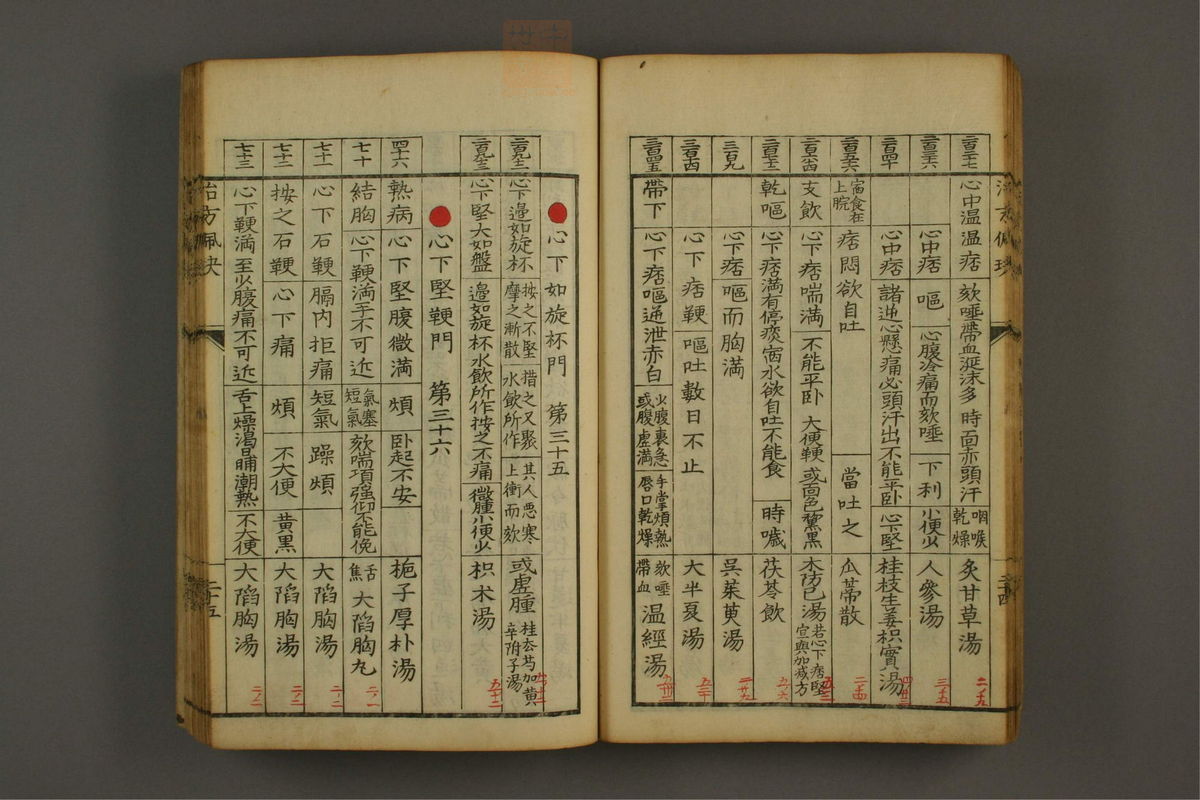 心中温温痞 欬唾帶血涎沫多 時面赤頭汗 咽喉乾燥 炙甘草湯
心中痞 嘔 心腹冷痛而欬唾 下利 小便少 人參湯
心中痞 諸逆心懸痛必頭汗出不能平卧 心下堅 桂枝生姜枳實湯
宿食在上脘 痞悶欲自吐 當吐之 瓜蔕散
支飲 心下痞喘滿 不能平卧 大便鞕 或面色黧黑 木防已湯 若心下痞堅宜與加减方
乾嘔 心下痞滿有停痰宿水欲自吐不能食 時噦 茯苓飲
三百九 心下痞 嘔而胸滿 呉茱萸湯
心下痞鞕 嘔吐數日不止 大半夏湯
帶下 心下痞嘔逆泄赤白 火腹裏急或腹虚滿 手掌煩熱唇口乾燥 欬唾帶血 温經湯
心下如旋杯門 第三十五
心下邊如旋杯 按之不堅摩之漸散 措之又聚水飲所作 其人悪寒上衝而欬 或虚腫 桂去芍加黄辛附子湯
心下堅大如盤 邊如旋杯水飲所作按之不痛 微腫小便少 枳朮湯
心下堅鞕門 第三十六
四十六 熱病 心下堅腹微滿 煩 卧起不安 梔子厚朴湯
七十 結胸 心下鞕滿手不可近 氣塞短氣 欬喘項强仰不能俛 舌焦 大陷胸丸
七十一 心下石鞕 膈内拒痛 短氣 躁煩 大陷胸湯
七十二 按之石鞕 心下痛 煩 不大便 黄黒 大陷胸湯
七十三 心下鞕滿至少腹痛不可近 舌上燥渇日晡潮熱 不大便 大陷胸湯
治方佩決
二十五